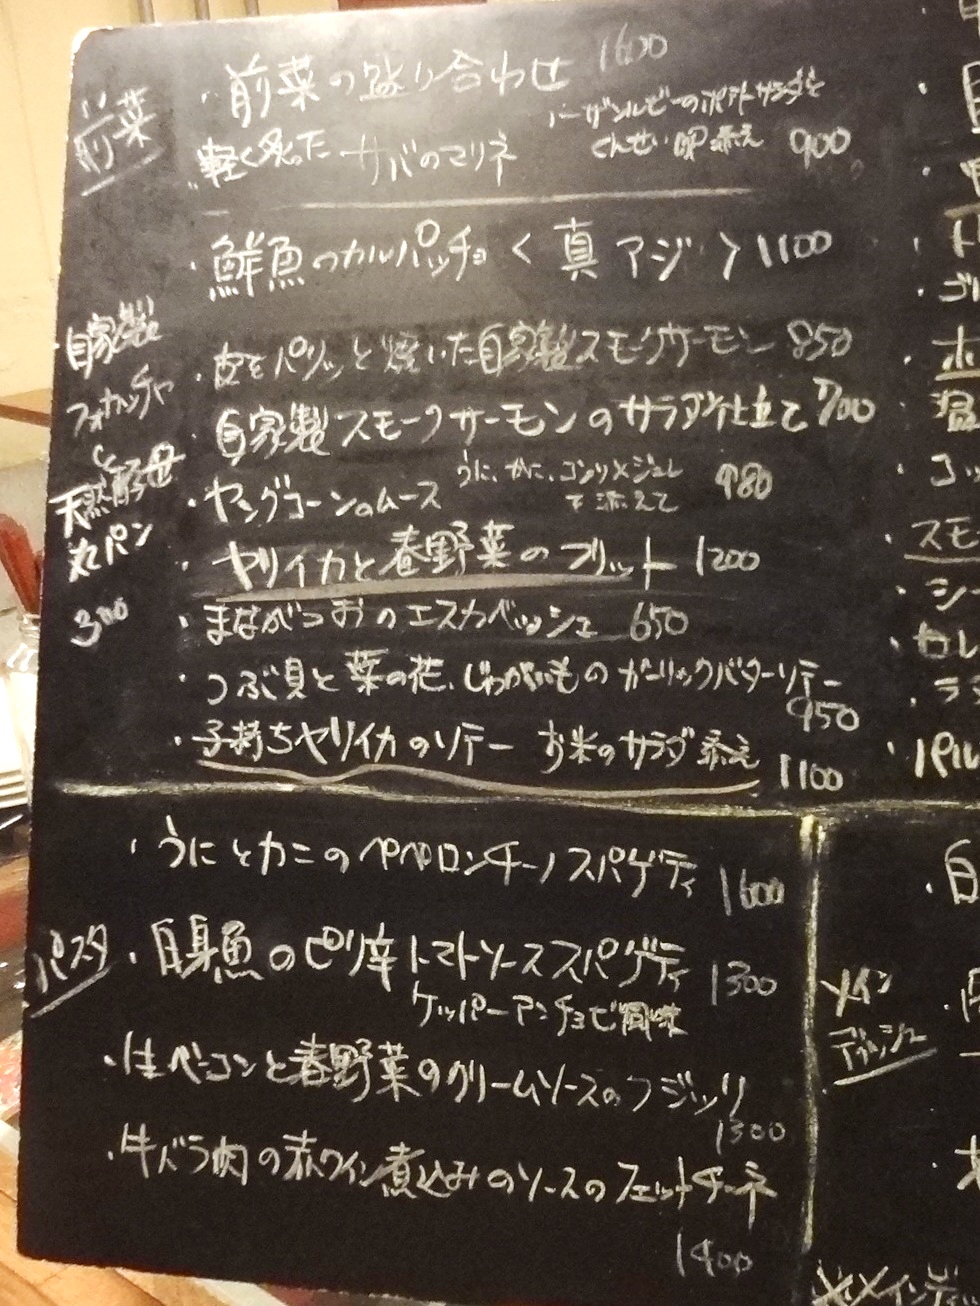 前菜
・前菜の盛り合わせ 1600
・軽く炙った サバのマリネ
ノーザンルビーのポテトサラダと
くんせい卵添え 900
・鮮魚のカルパッチョ〈真アジ〉1100
・皮をパリッと焼いた自家製スモークサーモン 850
自家製スモークサーモンのサラダ仕立て 700
・ヤングコーンのムース
うに、かに、コンソメジュレ
を添えて 980
・ヤリイカと春野菜のフリット 1200
・まながつおのエスカベッシュ 650
・つぶ貝と菜の花、じゃがいものガーリックバターソテー
950
・子持ちヤリイカのソテー お米のサラダ添え 1100
自家製
フォカッチャ
と
天然酵母
丸パン
300
パスタ
・うにとカニのペペロンチーノスパゲティ 1600
・白身魚のピリ辛トマトソーススパゲティ 1300
ケッパーアンチョビ風味
・生ベーコンと春野菜のクリームソースのフジッリ
1300
・牛バラ肉の赤ワイン煮込みのソースのフェットチーネ
1400
メイン
ディッシュ
・自
※メインディ
・ゴル
・ホ
・温
・コッ
・スモ
・シ
・セレ
・ラ
・パル